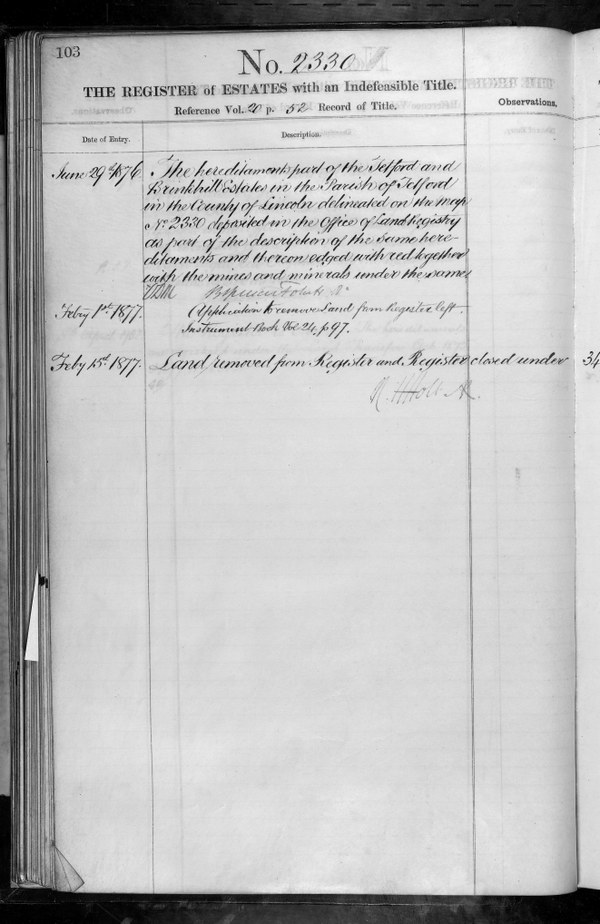 103
No. 2330
THE REGISTER of ESTATES with an Indefeasible Title.
Reference Vol. 20 p. 52 Record of Title.
Observations.
Date of Entry.
Description.
June 29th 1876
The hereditaments part of the Tetford and
Brinkhill Estates in the Parish of Tetford
in the County of Lincoln delineated on the map
No 2330 deposited in the Office of Land Registry
as part of the description of the same here-
ditaments and thereon edged with red together
with the mines and minerals under the same
Feby 1st 1877.
Application to remove Land from Register left.
Instrument Book Vol 24. p 97.
Feby 15th 1877.
Land removed from Register and Register closed under
34
R. H. Holt